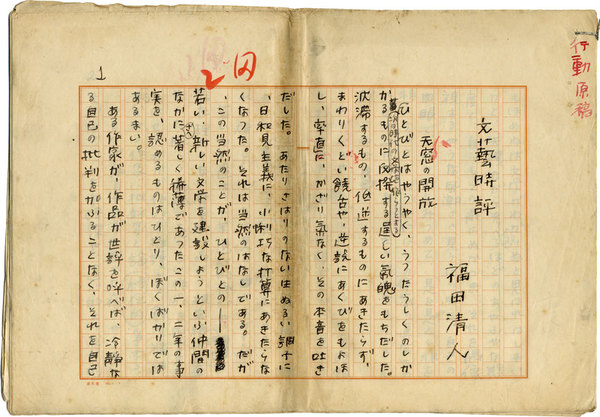 行動原稿
文藝時評
天窓の開放
福田清人
ひとびとはやうやく、うつたうしくのしか
かるものに反撥する逞しい氣魄をもちだした。
沈滞するもの、低迷するものにあきたらず、
まわりくどい饒舌や、逆説にあくびをもよほ
し、卒直に、かざり氣なく、その本音を吐き
だした。あたりさはりのない生ぬるい調子に
、日和見主義に、小悧巧な打算にあきたらな
くなつた。それは当然のはなしである。だが
、この当然のことが、ひとびとの──
若い、新しい文学を建設しようといふ仲間の
なかに著しく稀薄であつたこの一、二年の事
実を、認めるものはひとり、ぼくばかりでは
あるまい。
ある作家が、作品が世評を呼べば、冷静な
る自己の批判をかぶることなく、それを自己
1